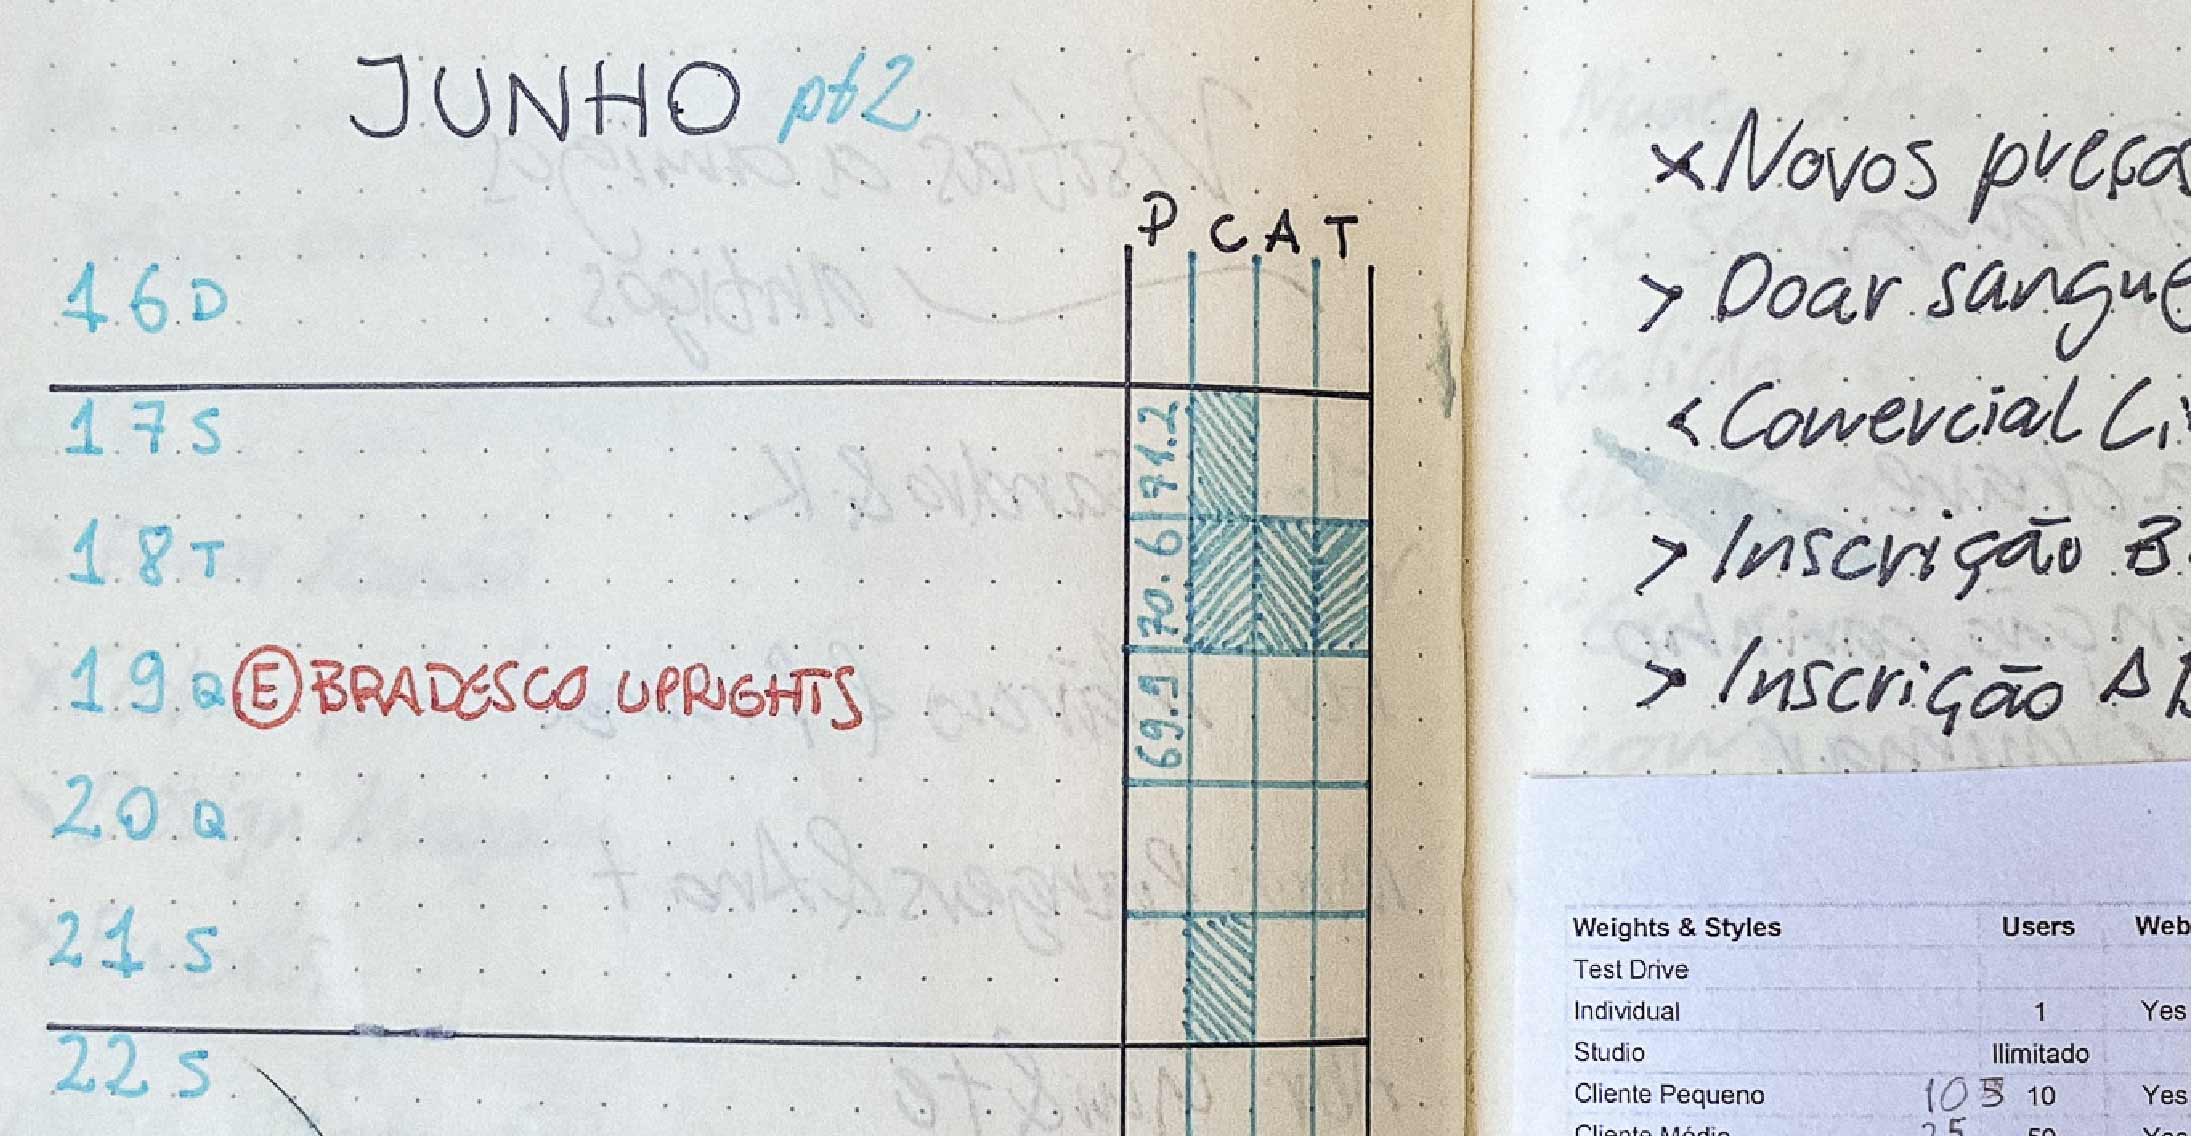 JUNHO pt2
P C A T
16 D
17 S 71.2
18 T 70.6
19 Q E BRADESCO UPRIGHTS 69.9
20 Q
21 S
22 S
x Novos
> Doar sangue
< Comercial
> Inscrição B
> Inscrição
Weights & Styles Users Web
Test Drive
Individual 1 Yes
Studio Ilimitado
Cliente Pequeno 10 Yes
Cliente Médio